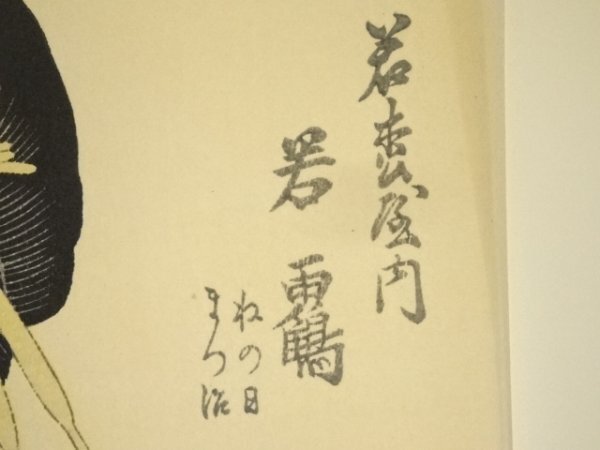 若松屋内
若鶴
ねの日
まつ治